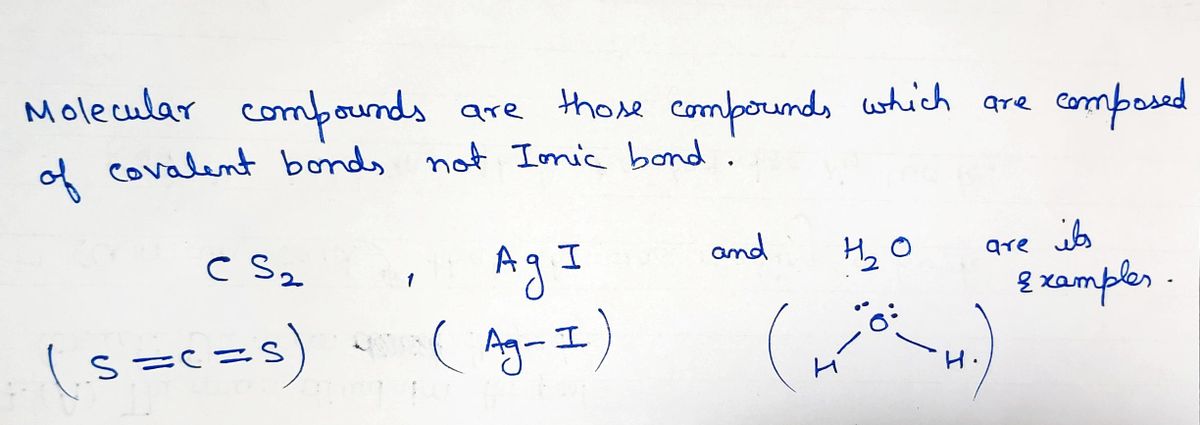 Molecular compounds are those compounds which are composed
of covalent bonds not Ionic bond.
CS₂, AgI and H₂O are its
Examples.
(S=C=S) (Ag-I) (H O H.)